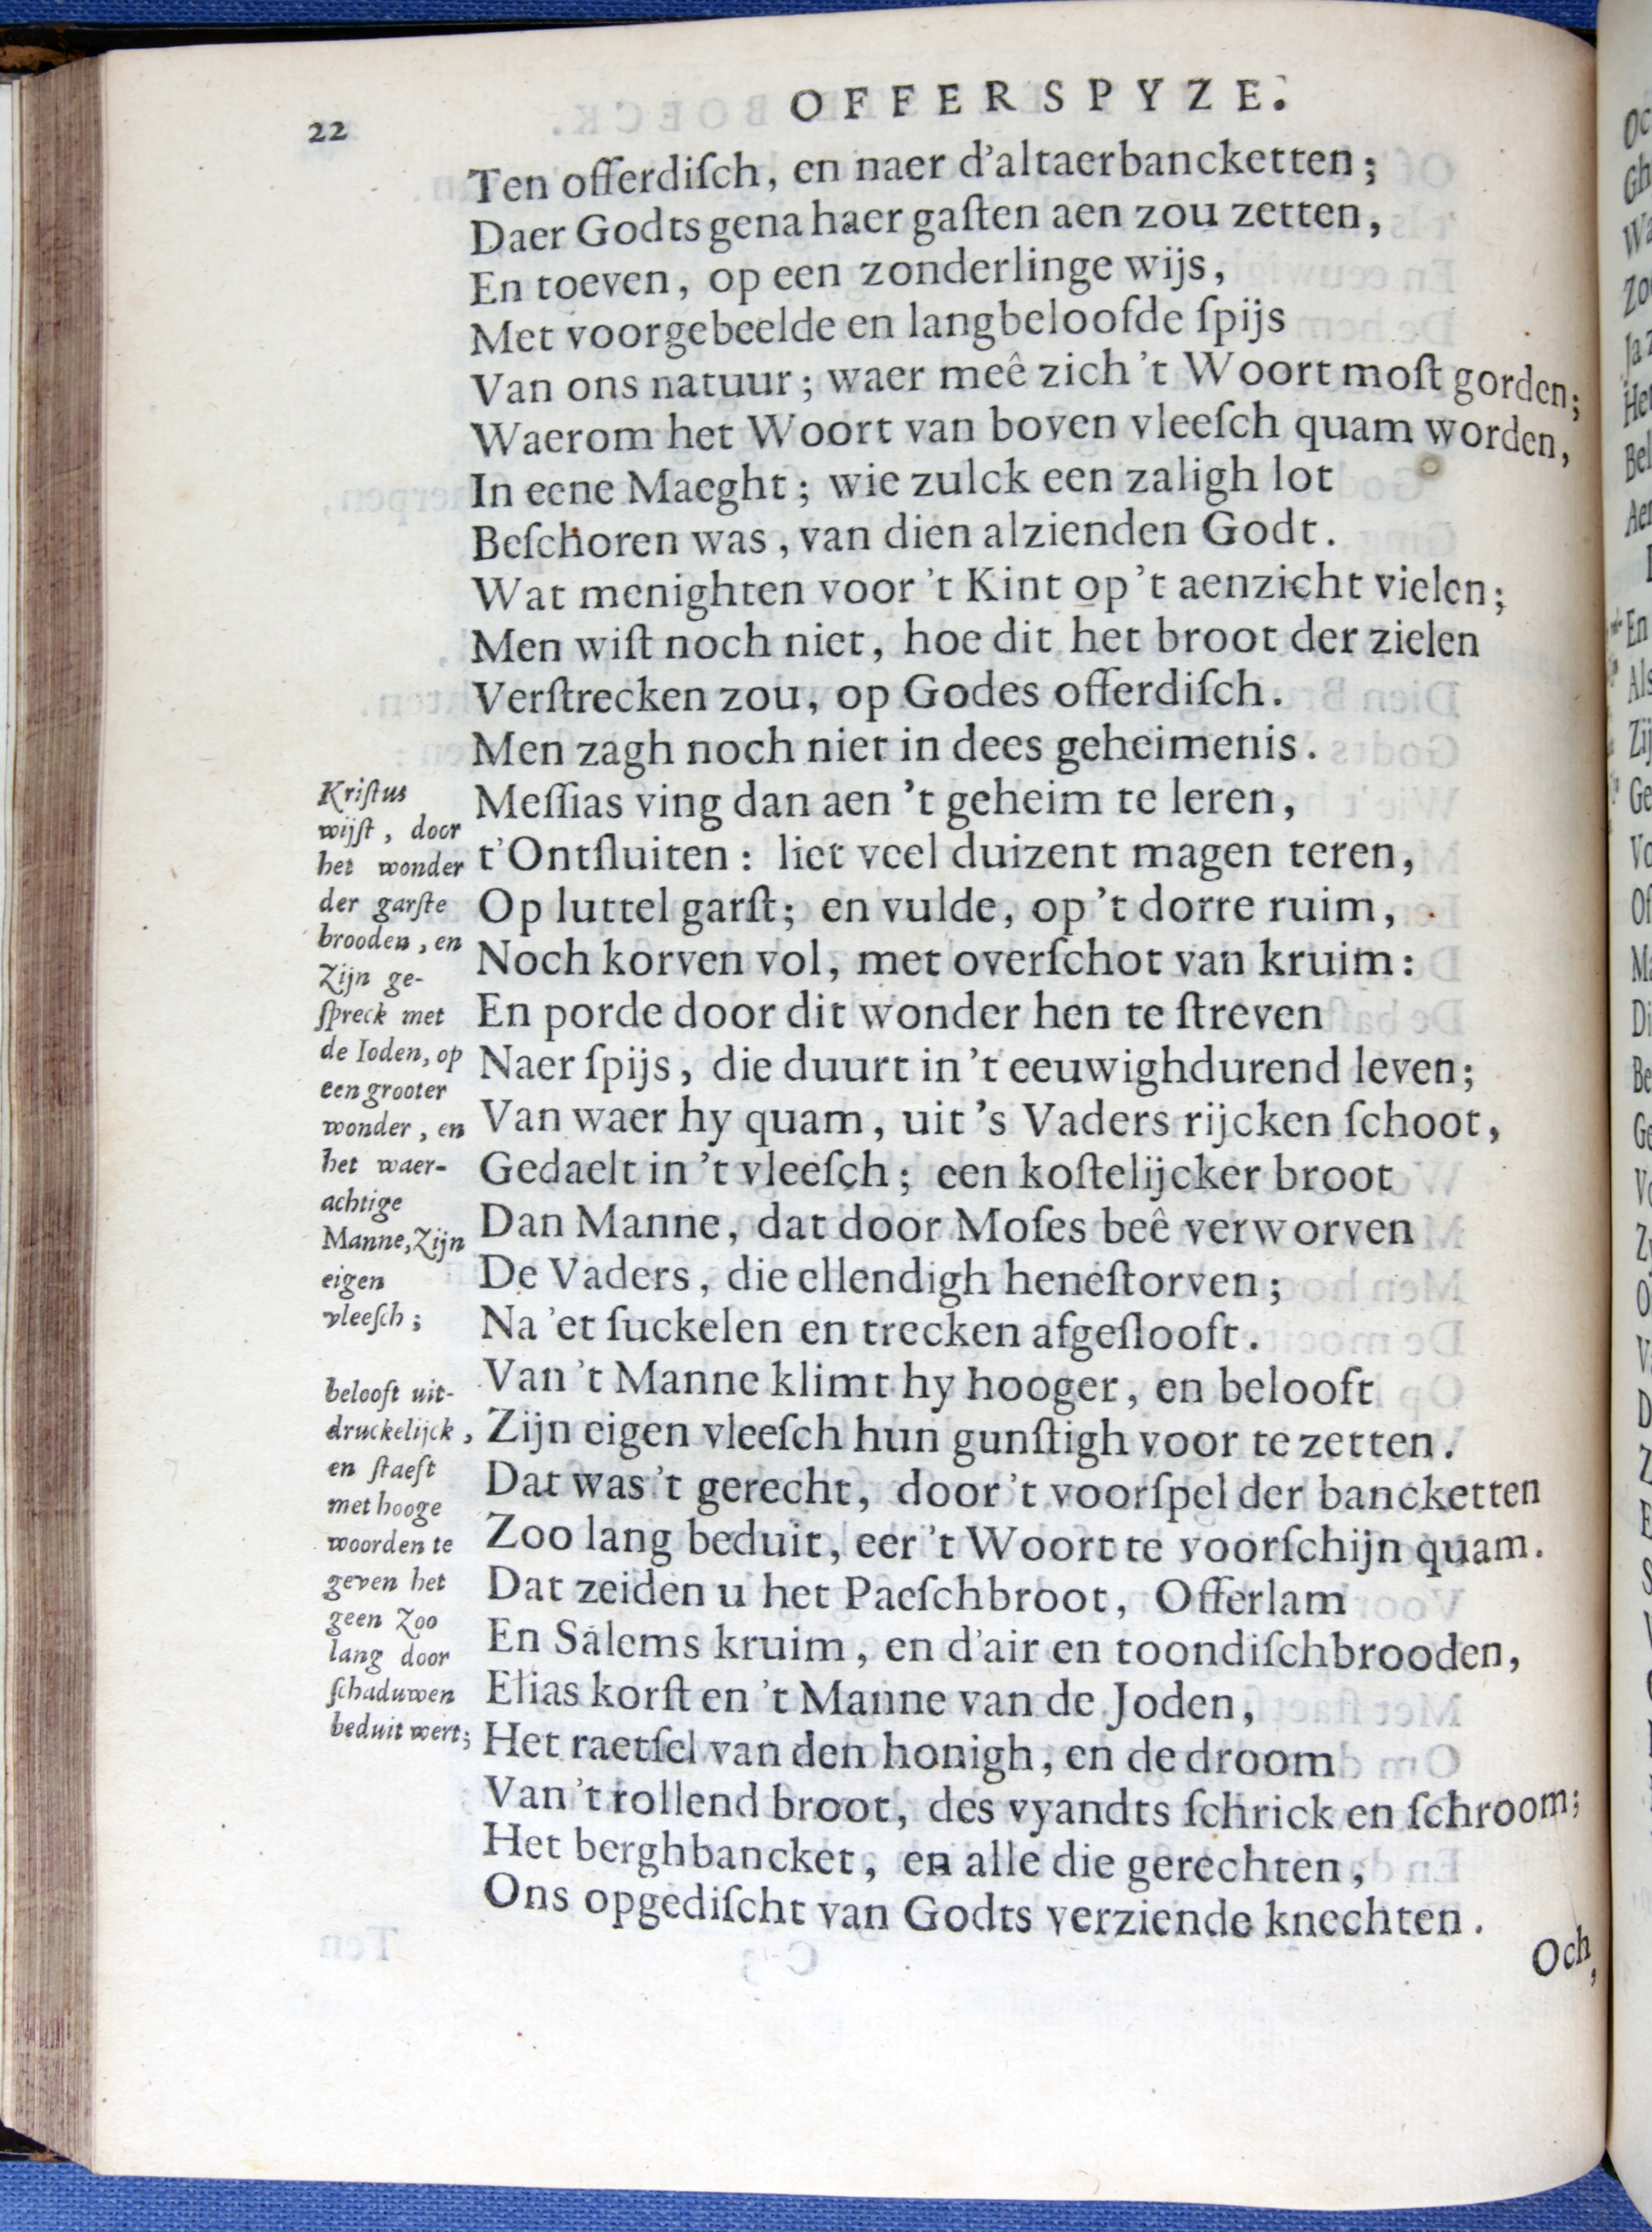 OFFERSPYZE.
22
Ten offerdiſch, en naer d'altaerbancketten;
Daer Godts gena haer gaſten aen zou zetten,
En toeven, op een zonderlinge wijs,
Met voorgebeelde en langbeloofde ſpijs
Van ons natuur; waer meê zich 't Woort moſt gorden;
Waerom het Woort van boven vleeſch quam worden,
In eene Maeght; wie zulck een zaligh lot
Beſchoren was, van dien alzienden Godt.
Wat menighten voor 't Kint op 't aenzicht vielen;
Men wiſt noch niet, hoe dit het broot der zielen
Verſtrecken zou, op Godes offerdiſch.
Men zagh noch niet in dees geheimenis.
Meſſias ving dan aen 't geheim te leren,
t'Ontſluiten: liet veel duizent magen teren,
Op luttel garſt; en vulde, op 't dorre ruim,
Noch korven vol, met overſchot van kruim:
En porde door dit wonder hen te ſtreven
Naer ſpijs, die duurt in 't eeuwighdurend leven;
Van waer hy quam, uit 's Vaders rijcken ſchoot,
Gedaelt in 't vleeſch; een koſtelijcker broot
Dan Manne, dat door Moſes beê verworven
De Vaders, die ellendigh heneſtorven;
Na 'et ſuckelen en trecken afgeſlooft.
Van 't Manne klimt hy hooger, en belooft
Zijn eigen vleeſch hun gunſtigh voor te zetten.
Dat was 't gerecht, door 't voorſpel der bancketten
Zoo lang beduit, eer 't Woort te voorſchijn quam.
Dat zeiden u het Paeſchbroot, Offerlam
En Salems kruim, en d'air en toondiſchbrooden,
Elias korſt en 't Manne van de Joden,
Het raetſel van den honigh, en de droom
Van 't rollend broot, des vyandts ſchrick en ſchroom;
Het berghbancket, en alle die gerechten,
Ons opgediſcht van Godts verziende knechten.
Kriſtus
wijſt, door
het wonder
der garſte
brooden, en
Zijn ge-
ſpreck met
de Ioden, op
een grooter
wonder, en
het waer-
achtige
Manne, Zijn
eigen
vleeſch;
belooft uit-
druckelijck,
en ſtaeft
met hooge
woorden te
geven het
geen Zoo
lang door
ſchaduwen
beduit wert;
Och,